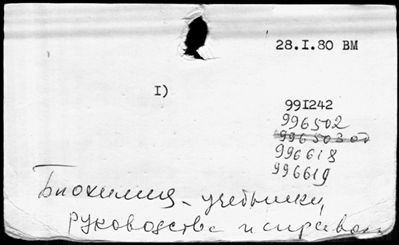 28.I.80 ВМ
I)
991242
996502
996503 од
996618
996619
Биохимия - учебники,
руководства и справоч